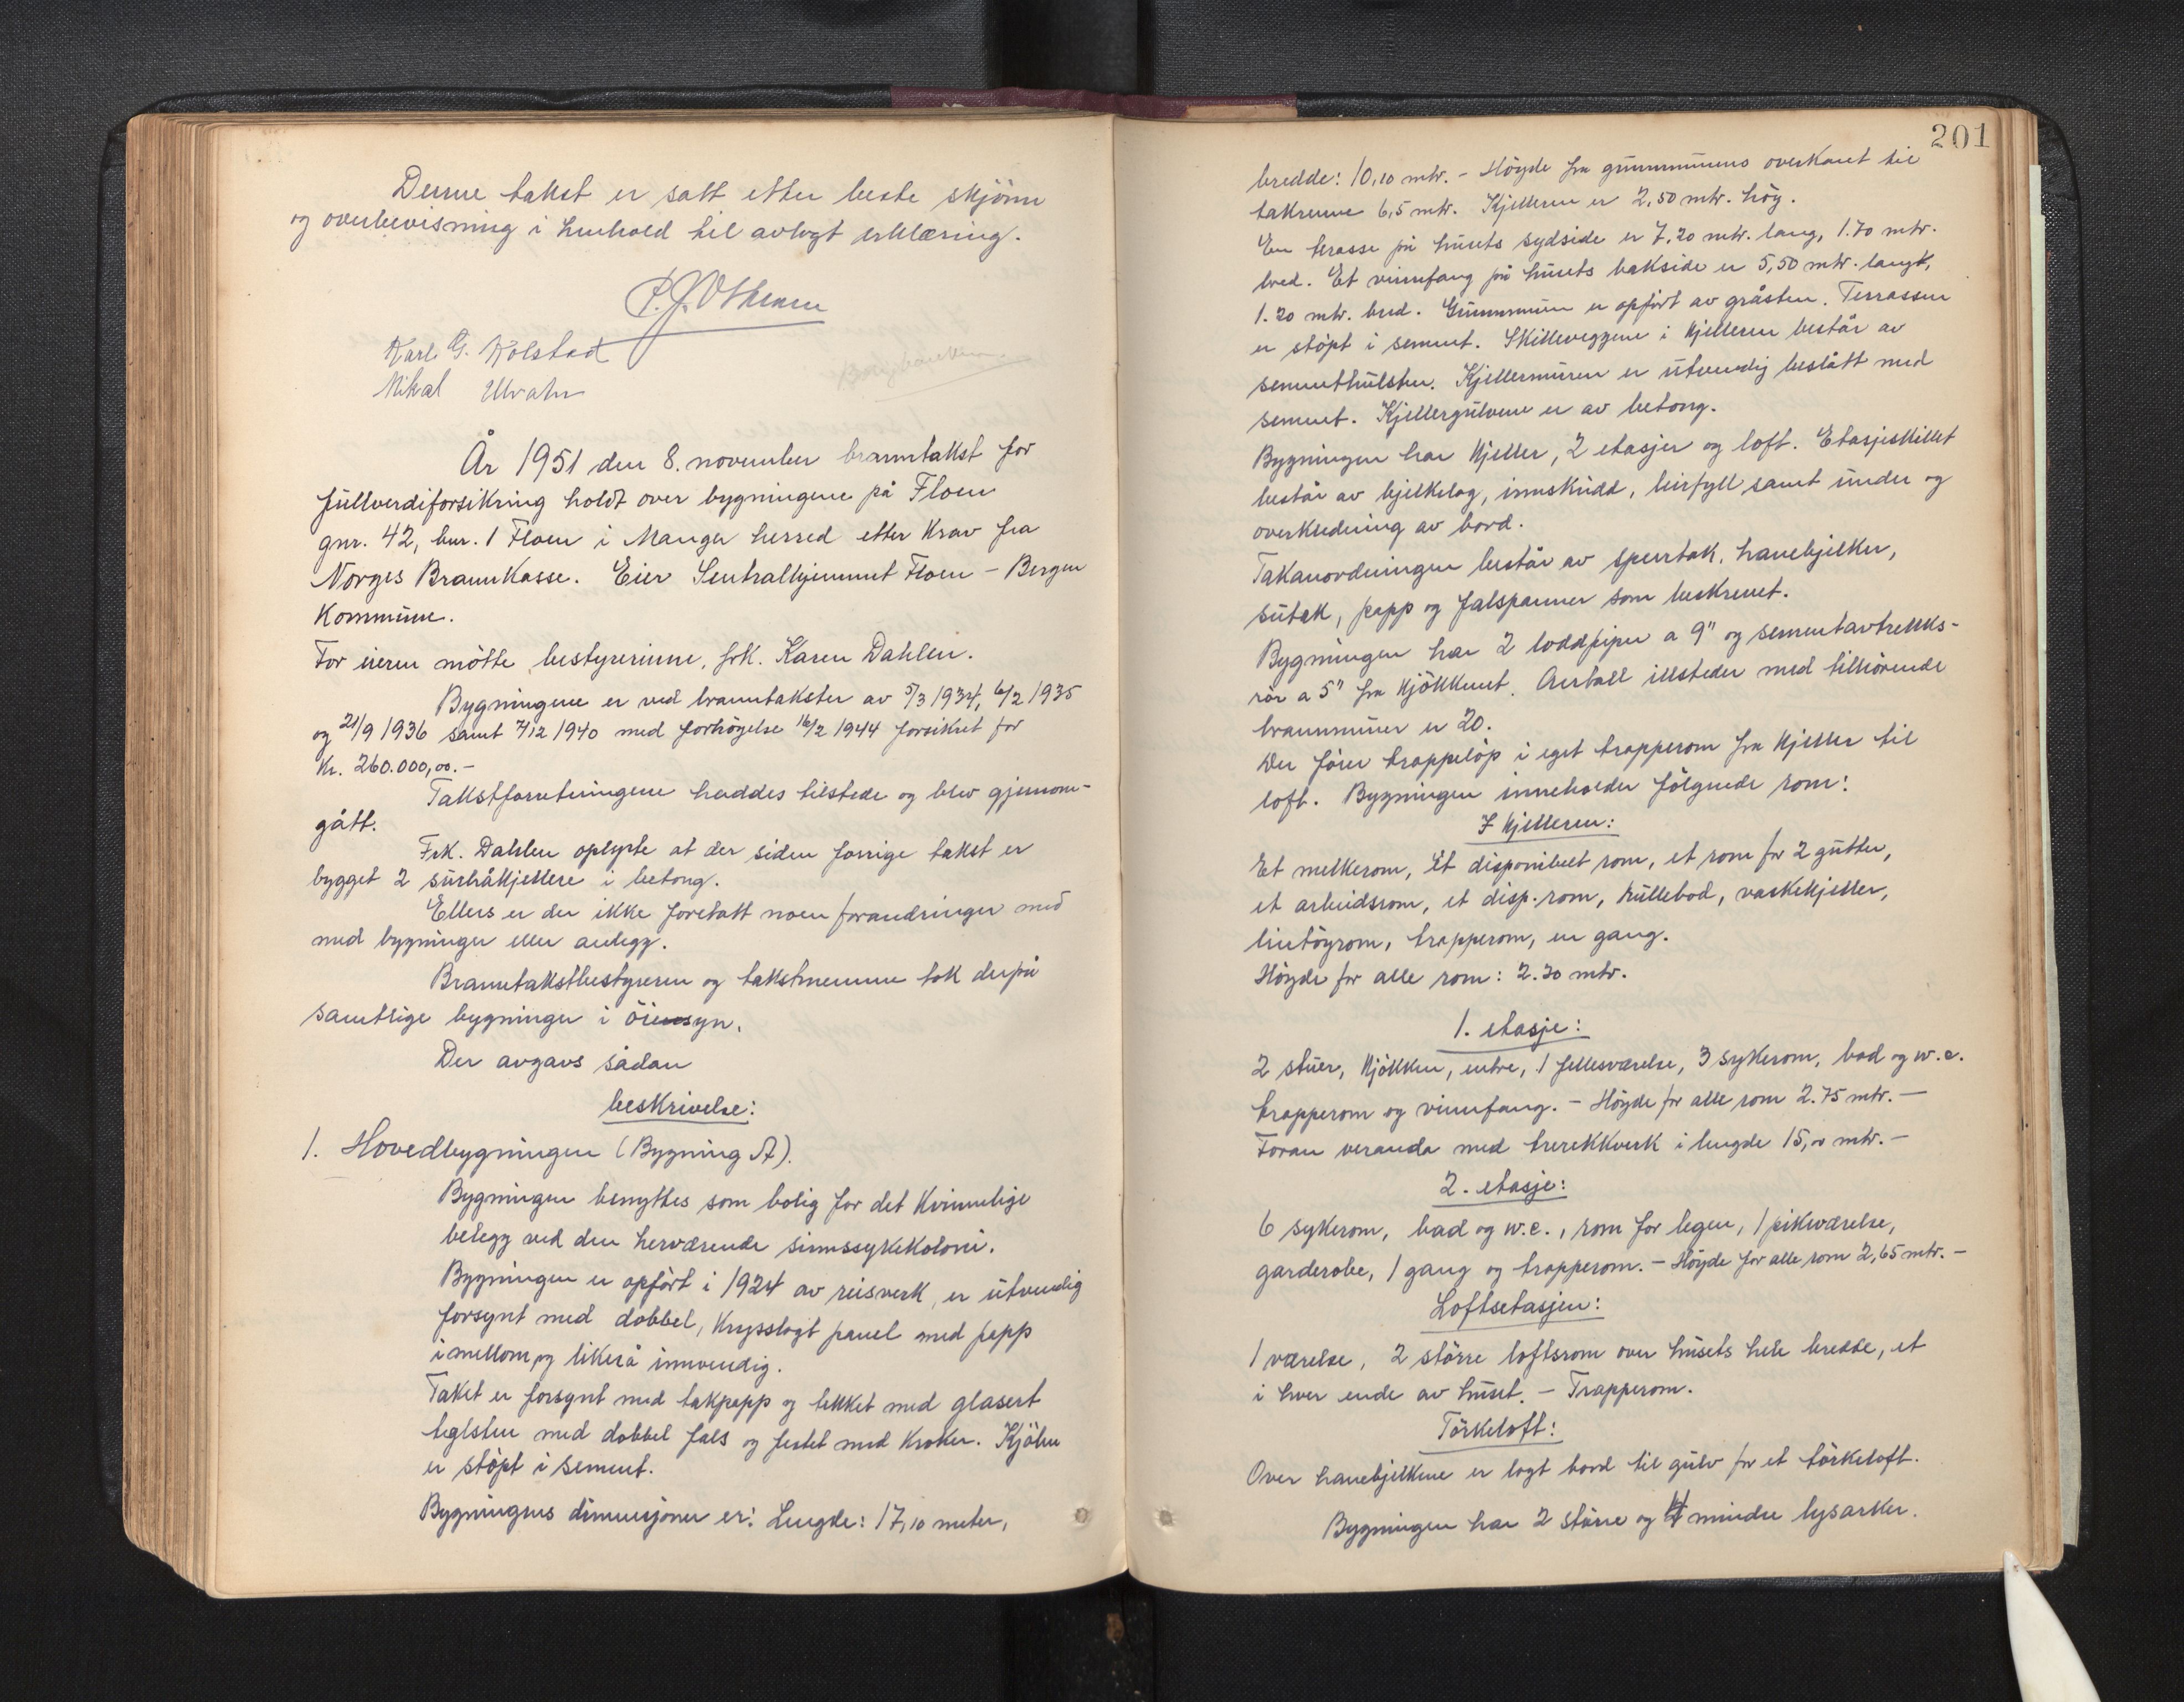 Denne takst er satt etter beste skjönn
og overbevisning i henhold til avlagt erklæring.
Karl G. Kolstad
Mikal
År 1951 den 8. november branntakst for
fullverdiforsikring holdt over bygningene på Floen
gnr. 42, bnr. 1 Floen i Manger herred etter krav fra
Norges Brannkasse. Eier Sentralhjemmet Floen - Bergen
Kommune.
For eieren mötte bestyrerinne, frk. Karen Dahlen.
Bygningene er ved branntakster av 5/3 1934, 6/2 1935
og 21/9 1936 samt 7/12 1940 med forhögelse 16/2 1944 forsikret for
Kr. 260.000,00.-
Takstforretningene haddes tilstede og blev gjennom-
gått.
Frk. Dahlen oplyste at der siden forrige takst er
bygget 2 surhåkjellere i betong.
Ellers er der ikke foretatt noen forandringer med
med bygninger eller anlegg.
Branntakstbestyreren og takstmennene tok derpå
samtlige bygninger i öiensyn.
Der avgavs sådan
beskrivelse:
1. Hovedbygningen (Bygning A).
Bygningen benyttes som bolig for det kvinnelige
belegg ved den herværende sinnssykekoloni.
Bygningen er opfört i 1924 av reisverk, er utvendig
forsynt med dobbel, krysslagt panel med papp
imellom, og likeså innvendig.
Taket er forsynt med takpapp og tekket med glasert
teglsten med dobbel fals og festet med kroker. Kjölen
er stöpt i sement.
Bygningens dimensjoner er: Lengde: 17,10 meter,
201
bredde: 10,10 mtr. - Höyde fra grunnmurens overkant til
takrenne 6,5 mtr. Kjelleren er 2,50 mtr. hög.
En terasse på husets sydside er 7,20 mtr. lang, 1.70 mtr.
bred. Et vinnfang på husets bakside er 5,50 mtr. langt,
1.20 mtr. bred. Grunnmuren er opfört av gråsten. Terrassen
er stöpt i sement. Skilleveggene i kjelleren består av
sementhulsten. Kjellermuren er utvendig beslått med
sement. Kjellergulvene er av betong.
Bygningen har kjeller, 2 etasjer og loft. Etasjeskillet
består av bjelkelag, innskudd, leirfyll samt under og
overkledning av bord.
Takanordningen består av sperrtak, hanebjelker,
sutak, papp og falspanner som beskrevet.
Bygningen har 2 loddpiper a 9" og sementavtrekks-
rör a 5" fra kjökkenet. Antall illsteder med tilhörende
brannmurer er 20.
Der förer trappelöp i eget trapperom fra kjeller til
loft. Bygningen inneholder fölgende rom:
I kjelleren:
Et melkerom, et disponibelt rom, et rom for 2 gutter,
et arbeidsrom, et disp. rom, rullebod, vaskekjeller,
lintöyrom, trapperom, en gang.
Höyde for alle rom: 2.30 mtr.
1. etasje:
2 stuer, kjökken, entre, 1 fellesværelse, 3 sykerom, bad og w.c.
trapperom og vinnfang. - Höyde for alle rom 2.75 mtr. -
Foran veranda med trerekkverk i lengde 15,00 mtr. -
2. etasje:
6 sykerom, bad og w.c., rom for legen, 1 pikeværelse,
garderobe, 1 gang og trapperom. - Höyde for alle rom 2,65 mtr. -
Loftsetasjen:
1 værelse, 2 större loftsrom over husets hele bredde, et
i hver ende av huset. - Trapperom.
Törkeloft:
Over hanebjelkene er lagt bord til gulv for et törkeloft.
Bygningen har 2 större og 4 mindre lysarker.